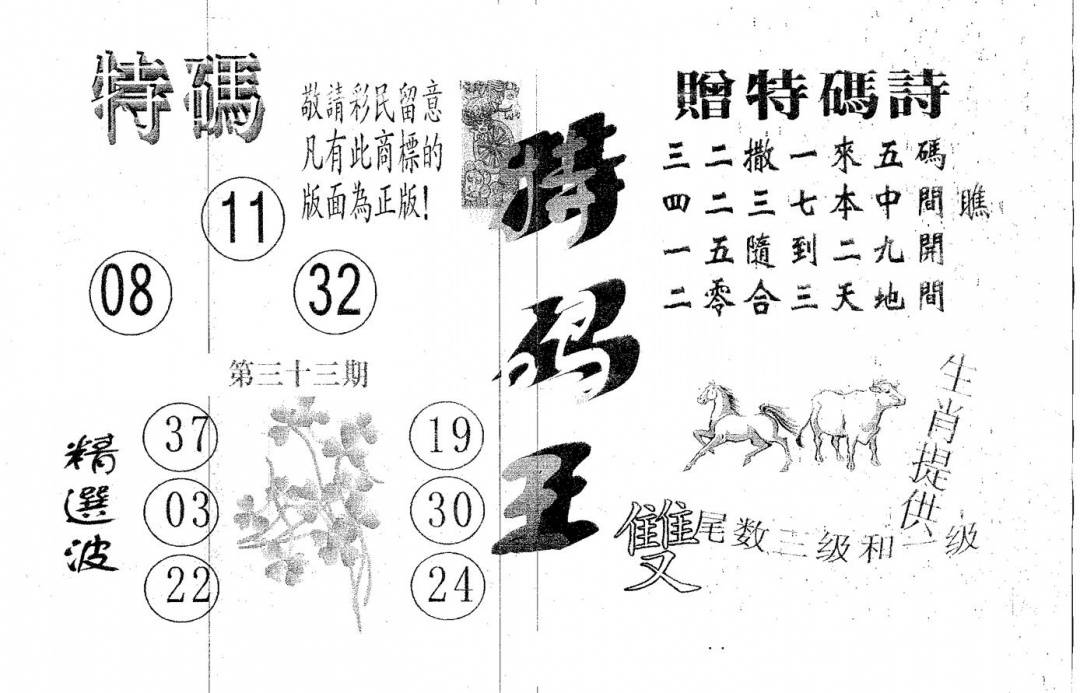 特碼
敬請彩民留意
凡有此商標的
版面為正版!
11
08
32
第三十三期
精選波
37
03
22
19
30
24
特码王
贈特碼詩
三二撒一來五碼
四二三七本中間瞧
一五隨到二九開
二零合三天地間
生肖提供
雙尾数二级和一级